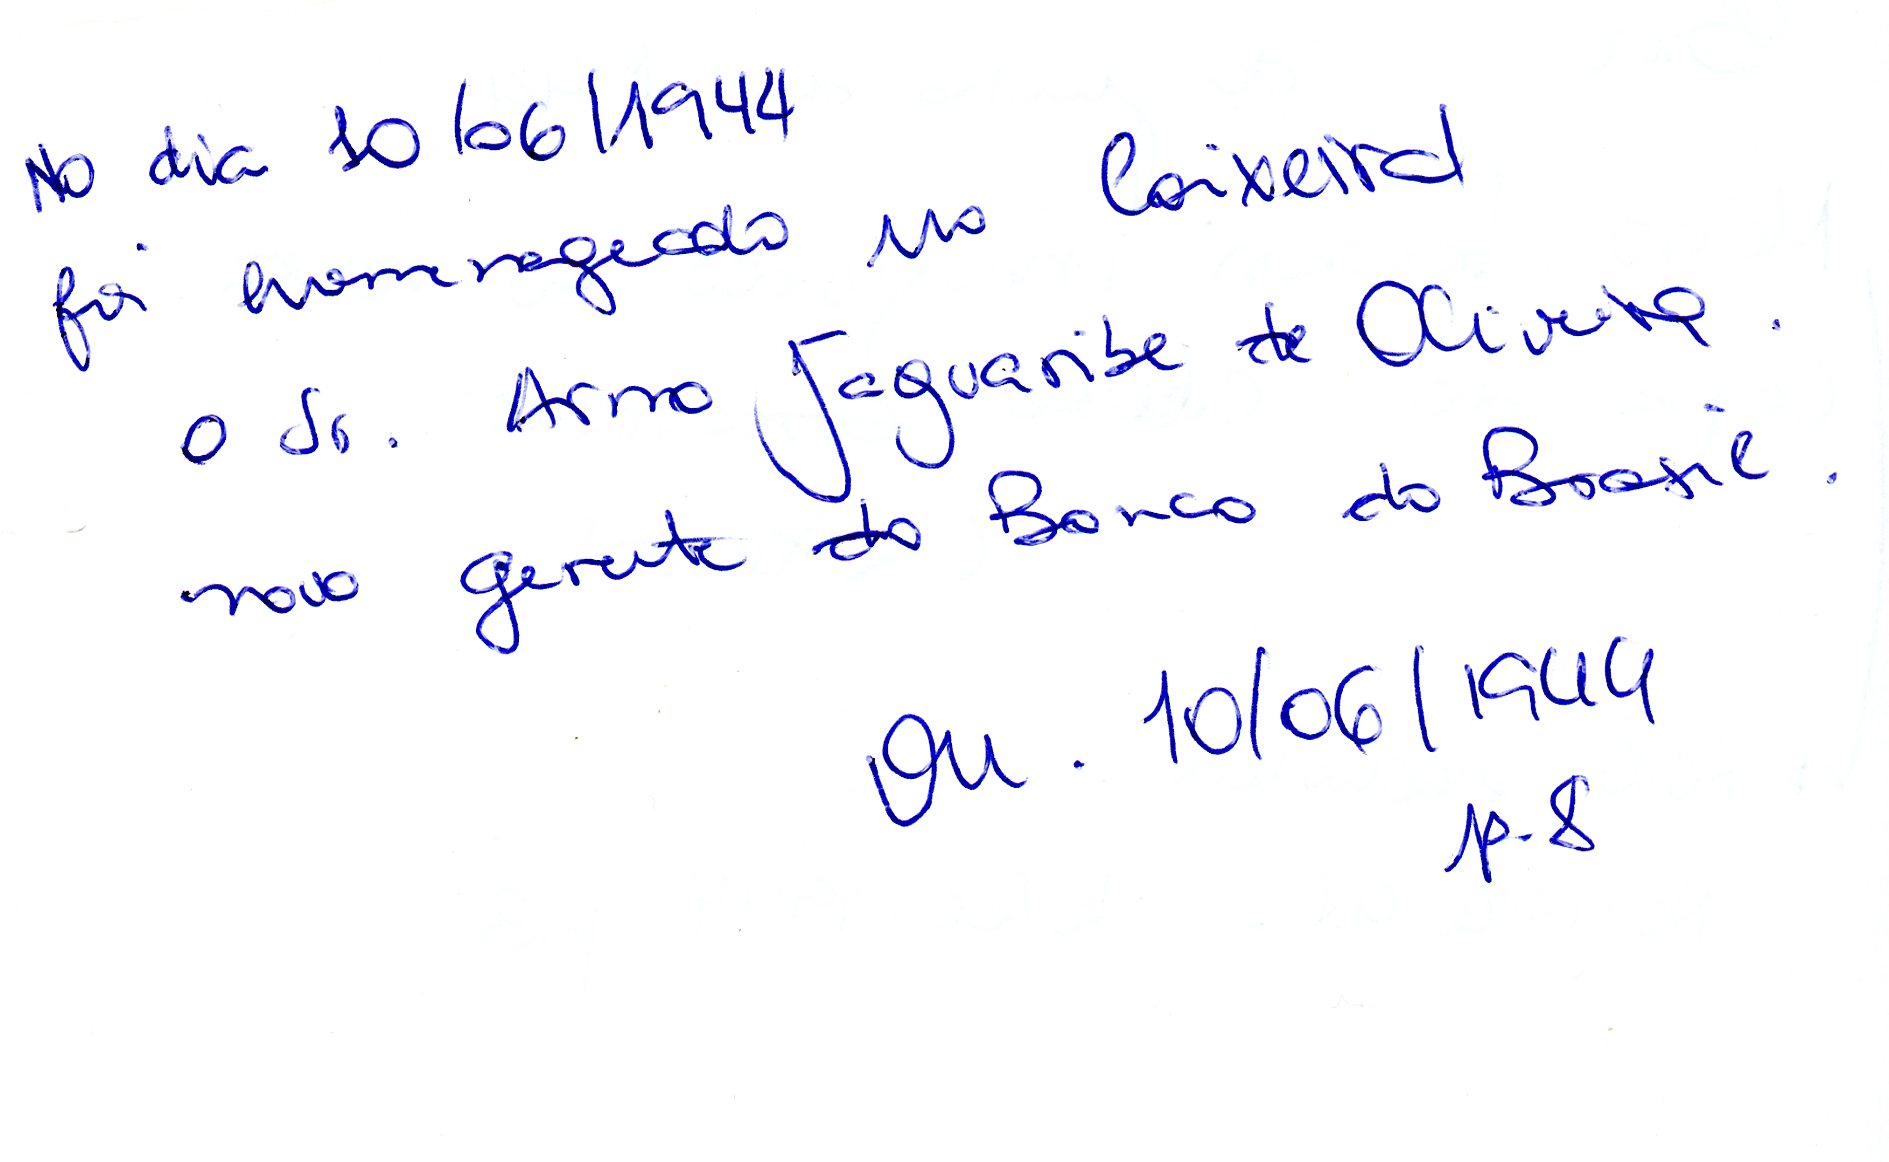 No dia 10/06/1944
foi homenageado no Caixeiral
o Sr. Arno Jaguaribe de Oliveira.
novo gerente do Banco do Brasil.
10/06/1944
p. 8